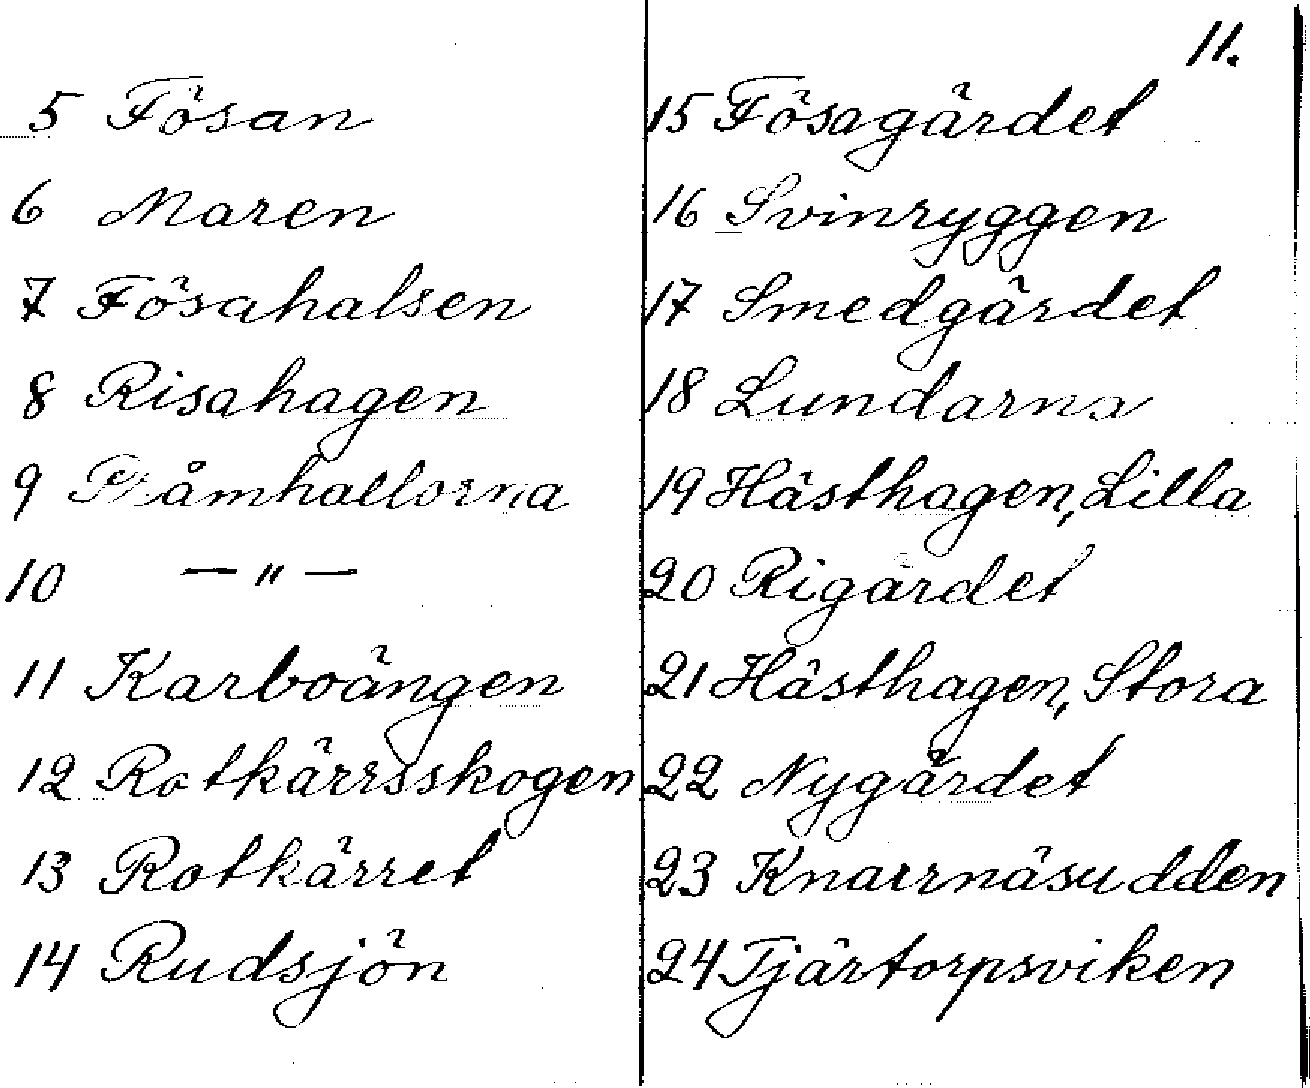 11.
5 Fösan
6 Maren
7 Fösahalsen
8 Risahagen
9 Pråmhallorna
10 — " —
11 Karboängen
12 Rotkärrsskogen
13 Rotkärret
14 Rudsjön
15 Fösagärdet
16 Svinryggen
17 Smedgärdet
18 Lundarna
19 Hästhagen, Lilla
20 Rigärdet
21 Hästhagen, Stora
22 Nygärdet
23 Knarrnäsudden
24 Tjärtorpsviken